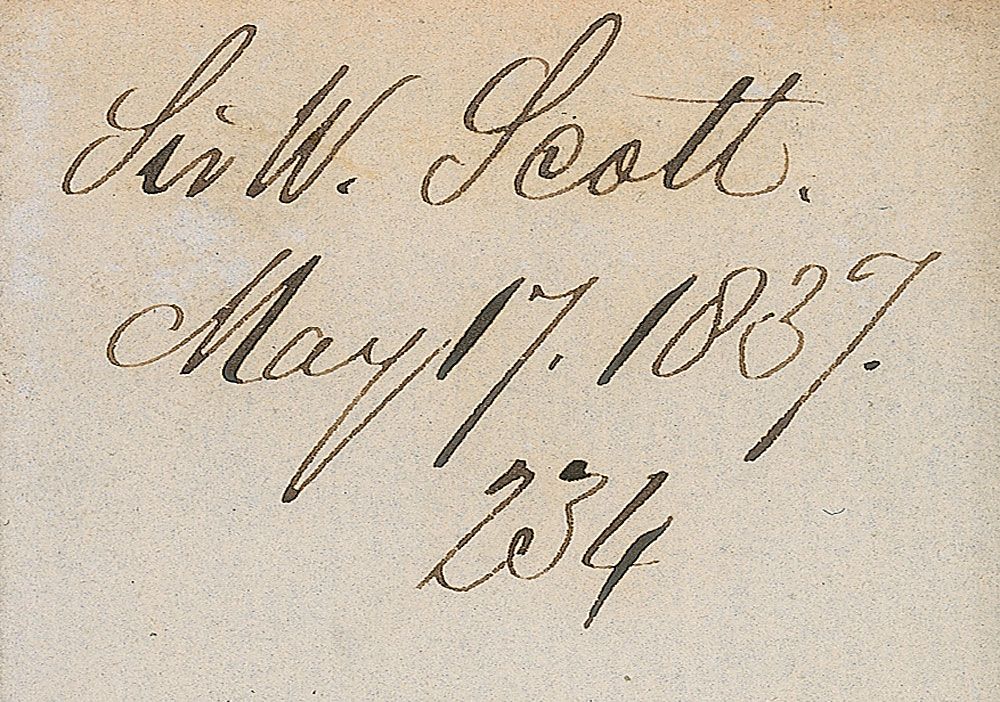 Sir W. Scott.
May 17. 1837.
234